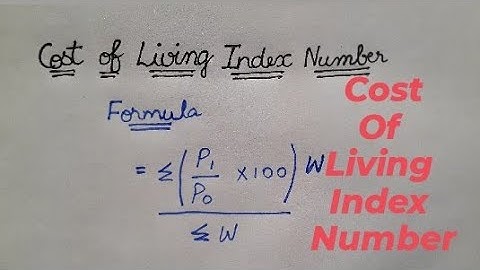 Cost of Living Index Number
Formula
= Σ(P₁/P₀ ×100) W
Σ W
Cost
Of
Living
Index
Number